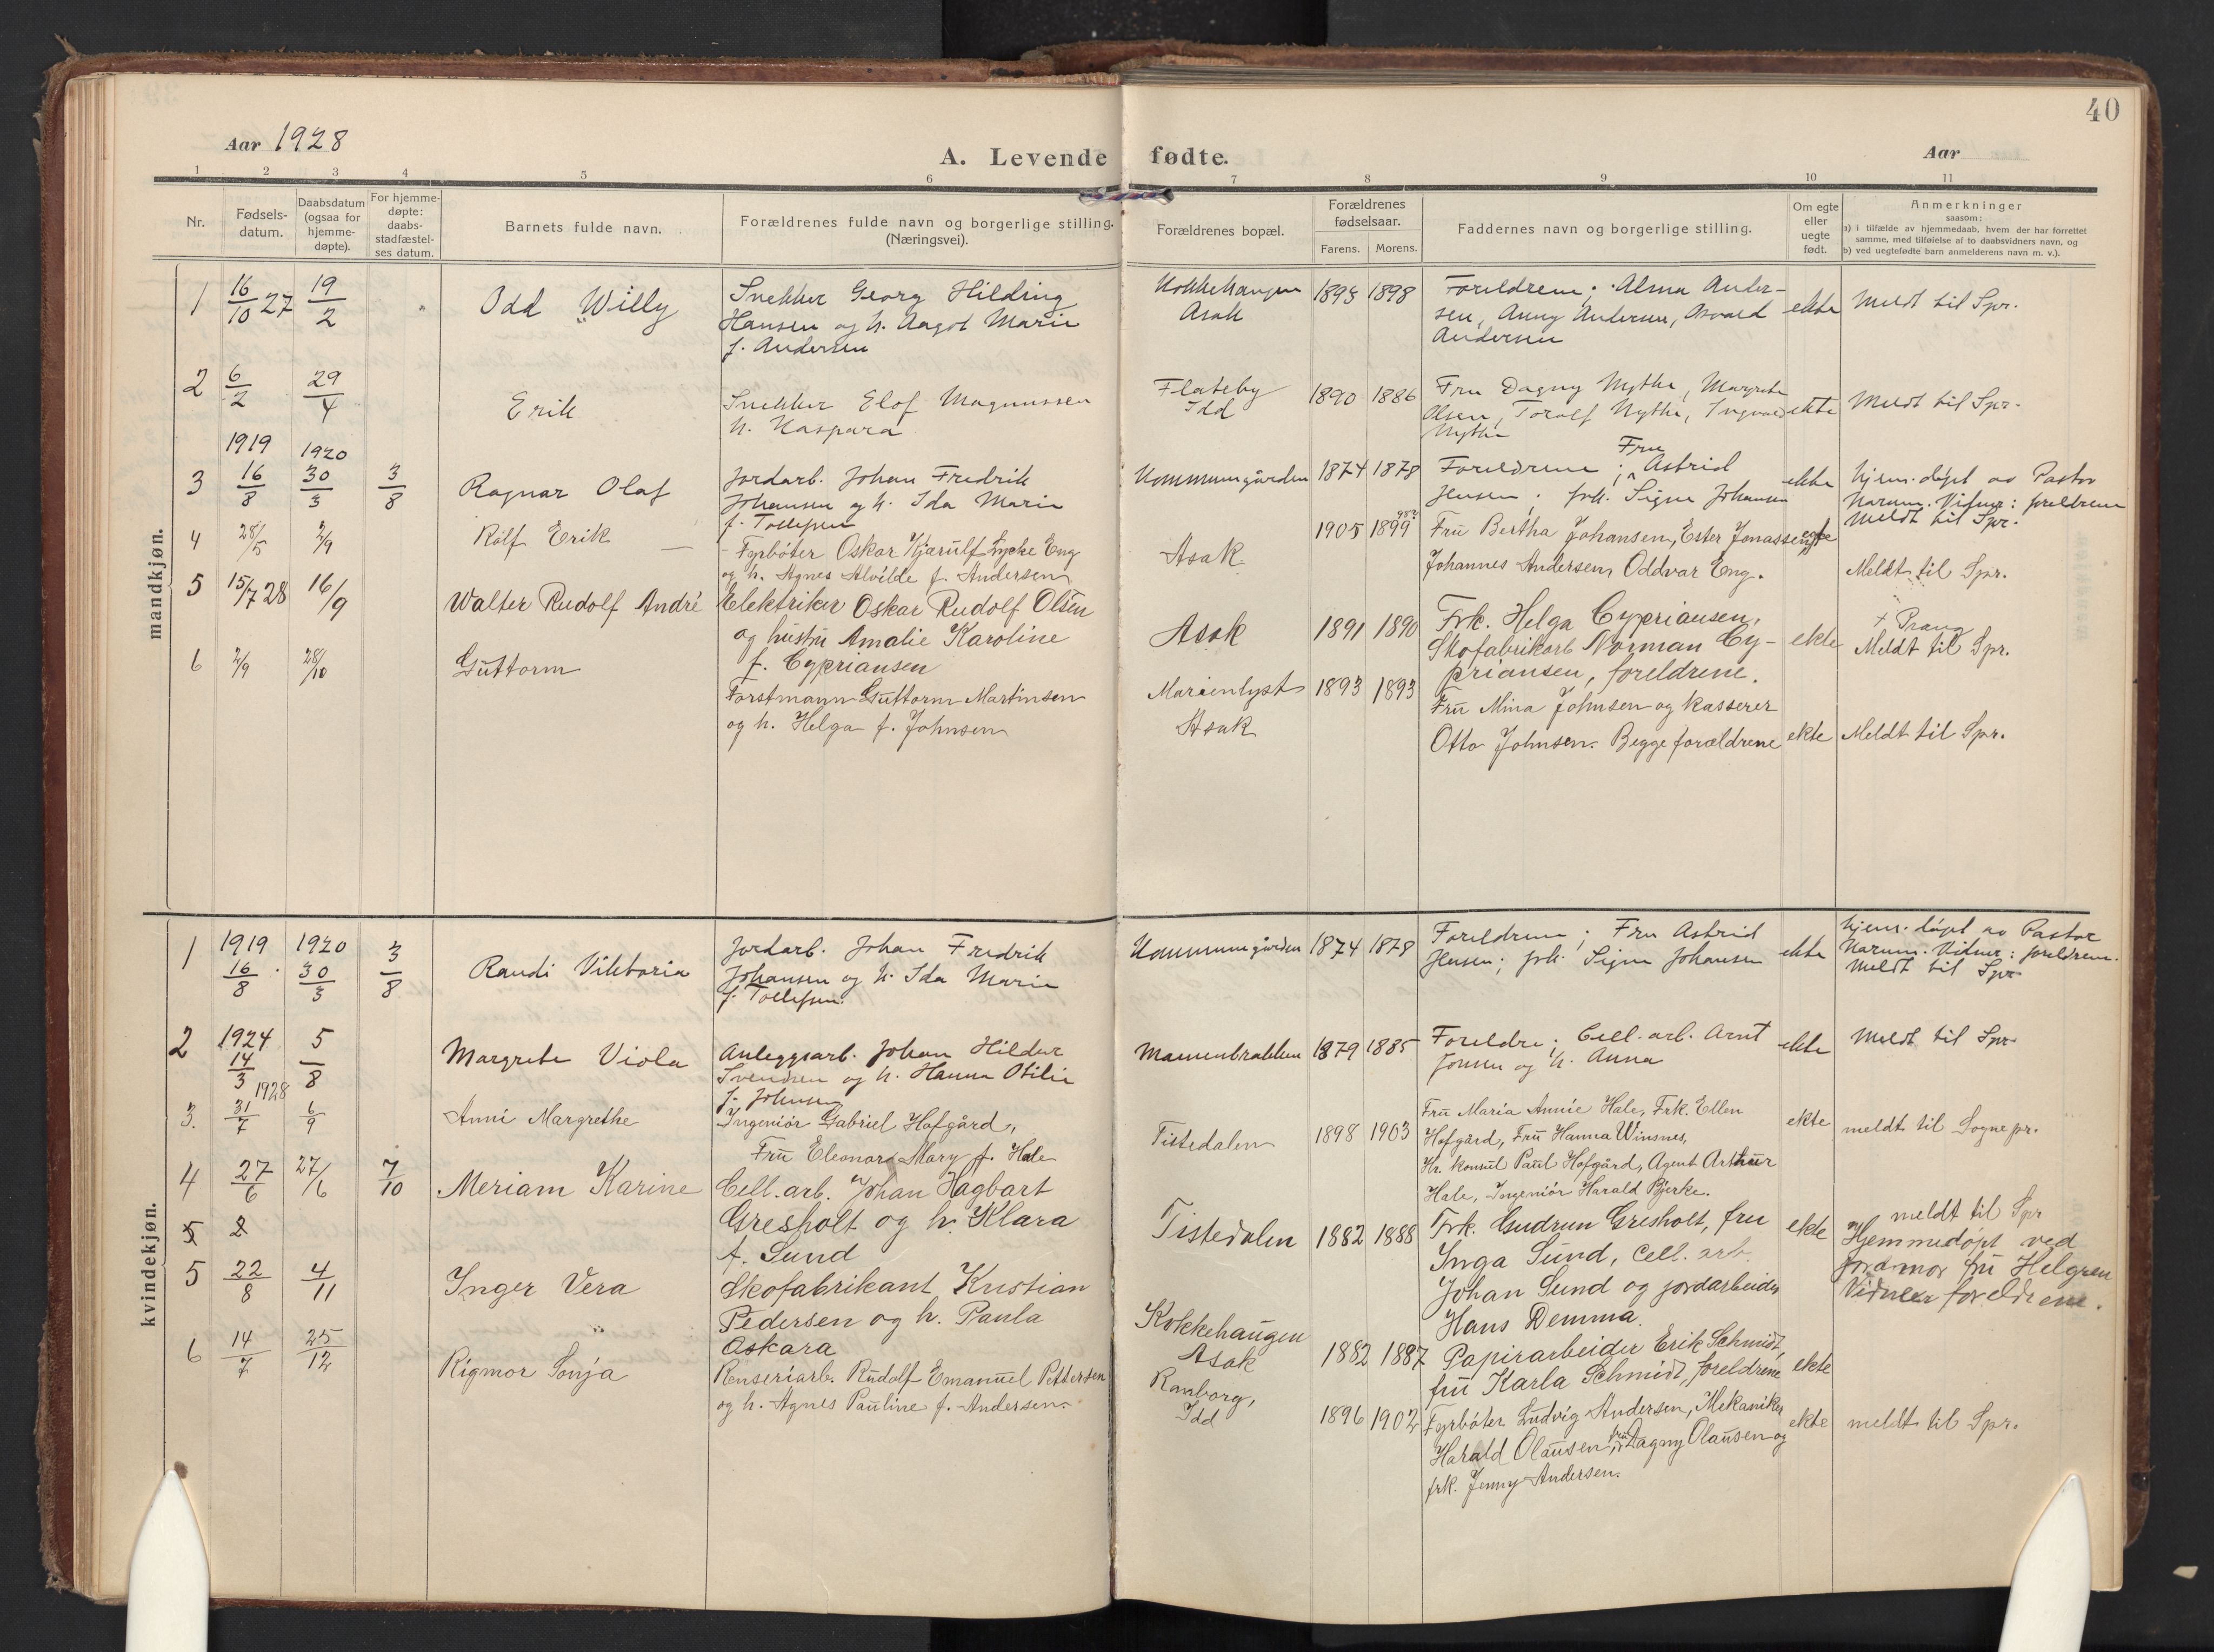 40
Aar 1928
A. Levende fødte.
Aar
1 2 3 4 5 6 7 8 9 10 11
Nr.
Fødsels-
datum.
Daabsdatum
(ogsaa for
hjemme-
døpte).
For hjemme-
døpte:
daabs-
stadfæstel-
ses datum.
Barnets fulde navn.
Forældrenes fulde navn og borgerlige stilling.
(Næringsvei).
Forældrenes bopæl.
Forældrenes
fødselsaar.
Farens. Morens.
Faddernes navn og borgerlige stilling.
Om egte
eller
uegte
født.
Anmerkninger
saasom:
a) i tilfælde av hjemmedaab, hvem der har forrettet
samme, med tilføielse af to daabsvidners navn, og
b) ved uegtefødte barn anmelderens navn m. v.).
mandkjøn.
1 16/10 27 19/2
Odd Willy
Snekker Georg Hilding
Hansen og h. Aagot Marie
f. Andersen
Kokkehaugen
Asak
1893 1898
Foreldrene; Alma Ander-
sen, Anny Andersen, Osvald
Andersen
ekte
Meldt til Spr.
2 6/2 29/4
Erik
Snekker Elof Magnussen
h. Kaspara
Flateby
Idd
1890 1886
Fru Dagny Mythe, Margrete
Olsen, Torolf Mythe, Ingvald
Mythe
ekte
Meldt til Spr.
1919 1920
3 16/8 30/3 3/8
Ragnar Olaf
Jordarb. Johan Fredrik
Johansen og h. Ida Marie
f. Tollefsen
Kommunegården
1874 1878
Foreldrene; Fru Astrid
Jensen; frk. Signe Johansen
ekte
hjem. døpt av Pastor
Narum. Vidner: foreldrene
Meldt til Spr.
4 28/5 2/9
Rolf Erik
Fyrbøter Oskar Kjarulf Lycke Eng
og h. Agnes Alvilde f. Andersen
Asak
1905 1899
Fru Bertha Johansen, Ester Jonassen,
Johannes Andersen, Oddvar Eng.
Meldt til Spr.
5 15/7 28 16/9
Walter Rudolf André
Elektriker Oskar Rudolf Olsen
og hustru Amalie Karoline
f. Cypriansen
Asak
1891 1890
Frk. Helga Cypriansen,
Skofabrikarb Norman Cy-
priansen, foreldrene.
ekte
+ Prang
Meldt til Spr.
6 2/9 28/10
Guttorm
Forstmann Guttorm Martinsen
og h. Helga f. Johnsen
Marienlyst
Asak
1893 1893
Fru Mina Johnsen og kasserer
Otto Johnsen. Begge forældrene
ekte
Meldt til Spr.
kvindekjøn.
1919 1920
1 16/8 30/3 3/8
Randi Viktoria
Jordarb. Johan Fredrik
Johansen og h. Ida Marie
f. Tollefsen.
Kommunegården
1874 1878
Foreldrene; Fru Astrid
Jensen; frk. Signe Johansen
ekte
hjem. døpt av Pastor
Narum. Vidner: foreldrene.
Meldt til Spr.
1924
2 14/3 5/8
Margrete Viola
Anleggsarb. Johan Hilder
Svendsen og h. Hanna Otilie
f. Johnsen
1879 1885
Foreldre; Cell. arb. Arnt
Jonsen og h. Anna
ekte
Meldt til Spr.
1928
3. 31/7 6/9
Anni Margrethe
Ingeniør Gabriel Hofgård,
Fru Eleonora Mary f. Hale
Tistedalen
1898 1903
Fru Maria Annie Hale, Frk. Ellen
Hofgård, Fru Hanna Winsnes,
Hr. konsul Paul Hofgård, Agent Arthur
Hale, Ingeniør Harald Bjerke.
ekte
meldt til Sognepr.
4 27/6 27/6 7/10
Meriam Karine
Cell. arb. Johan Hagbart
Gresholt og h. Klara
f. Lund
Tistedalen
1882 1888
Frk. Gudrun Gresholt, fru
Inga Lund, Cell. arb
Johan Lund og jordarbeider
Hans Demma.
ekte
meldt til Spr
Hjemmedøpt ved
jordmor fru Helgren
Vidner foreldrene.
5 2
5 22/8 4/11
Inger Vera
Skofabrikant Kristian
Pedersen og h. Paula
Askara
Kokkehaugen
Asak
1882 1887
Papirarbeider Erik Schmidt,
fru Karla Schmidt, foreldrene
ekte
6 14/7 25/12
Rigmor Sonja
Renseriarb. Rudolf Emanuel Pettersen
og h. Agnes Pauline f. Andersen.
Ranborg,
Idd
1896 1902
Fyrbøter Ludvig Andersen, Mekaniker
Harald Olausen, fru Dagny Olausen og
frk. Jenny Andersen.
ekte
meldt til Spr.